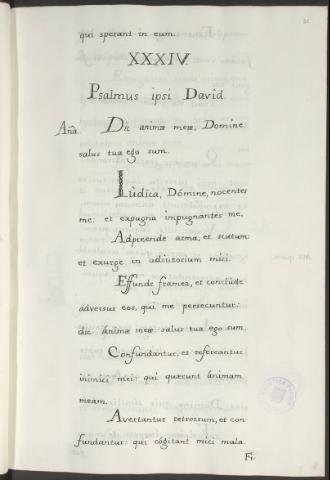 qui sperant in eum.
XXXIV.
Psalmus ipsi David.
Aña. Dic animæ meæ, Domine
salus tua ego sum.
Iúdica, Dómine, nocentes
me: et expugna impugnantes me.
Adprende arma, et scutum:
et exurge in adiutorium mici:
Effunde framea, et conclúde
adversus eos, qui me persecuntur:
dic ánimæ meæ salus tua ego sum.
Confundantur, et refereantur
inimici mei: qui quærunt ánimam
meam.
Avertantur retrorsum, et con-
fundantur: qui cógitant mici mala.
Fi-